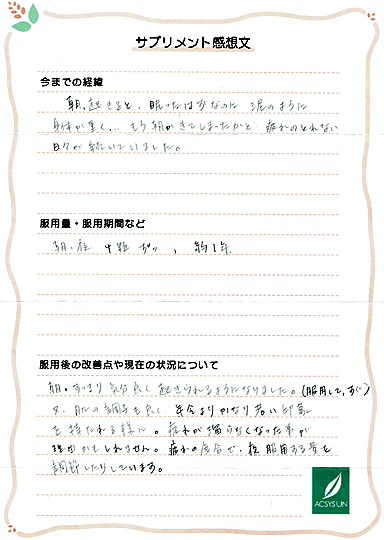 サプリメント感想文
今までの経緯
朝、起きると、眠ったはずなのに 泥のように
身体が重く… もう朝がきてしまったかと 疲れのとれない
日々が続いていました。
服用量・服用期間など
朝・夜 4粒 ずつ 、 約1年
服用後の改善点や現在の状況について
朝。すっきり 気分良く 起きられるようになりました。(服用して、すぐ)
又、肌の調子も良く 年令よりかなり若い印象
を持たれる様に。疲れが溜らなくなった事が
理由かもしれません。疲れの度合で、服用する量を
調節したりしています。
ACSYSUN